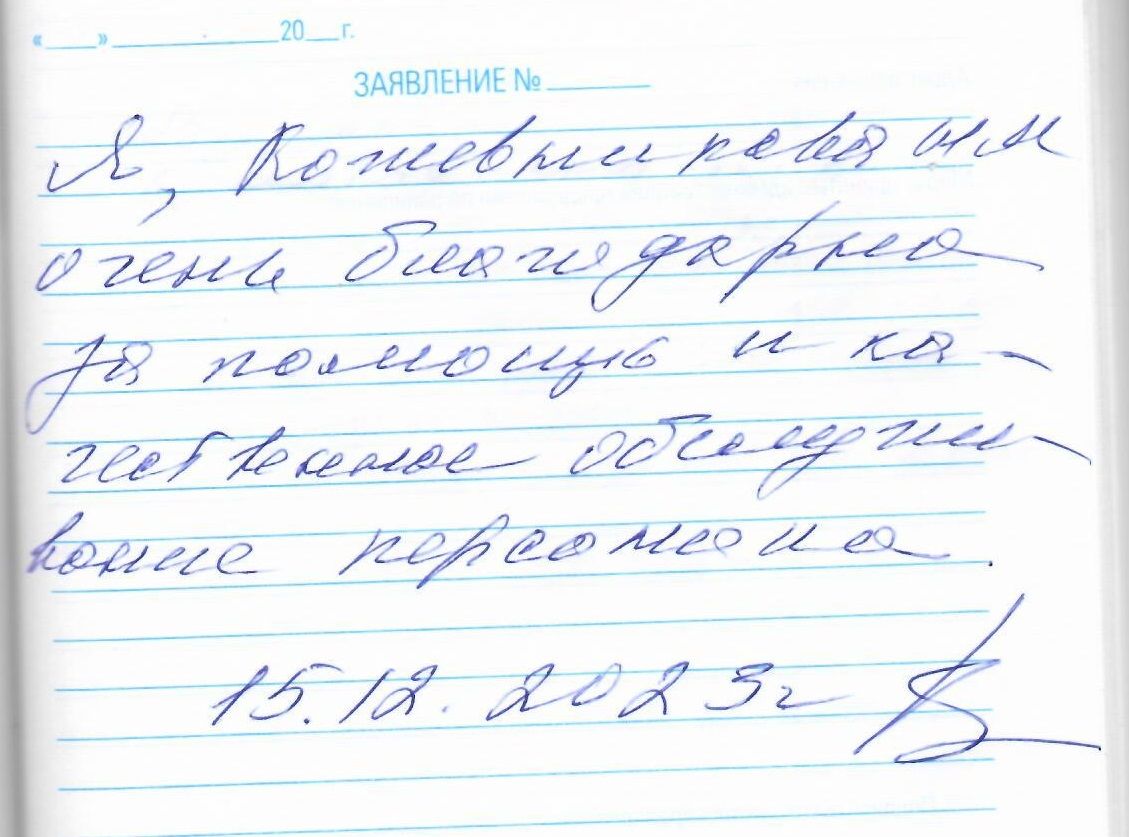 «___»______________20__г.
ЗАЯВЛЕНИЕ №________
Я, Кожевникова
очень благодарна
за помощь и ка-
чественное обслужи-
вание персонала.
15.12.2023г